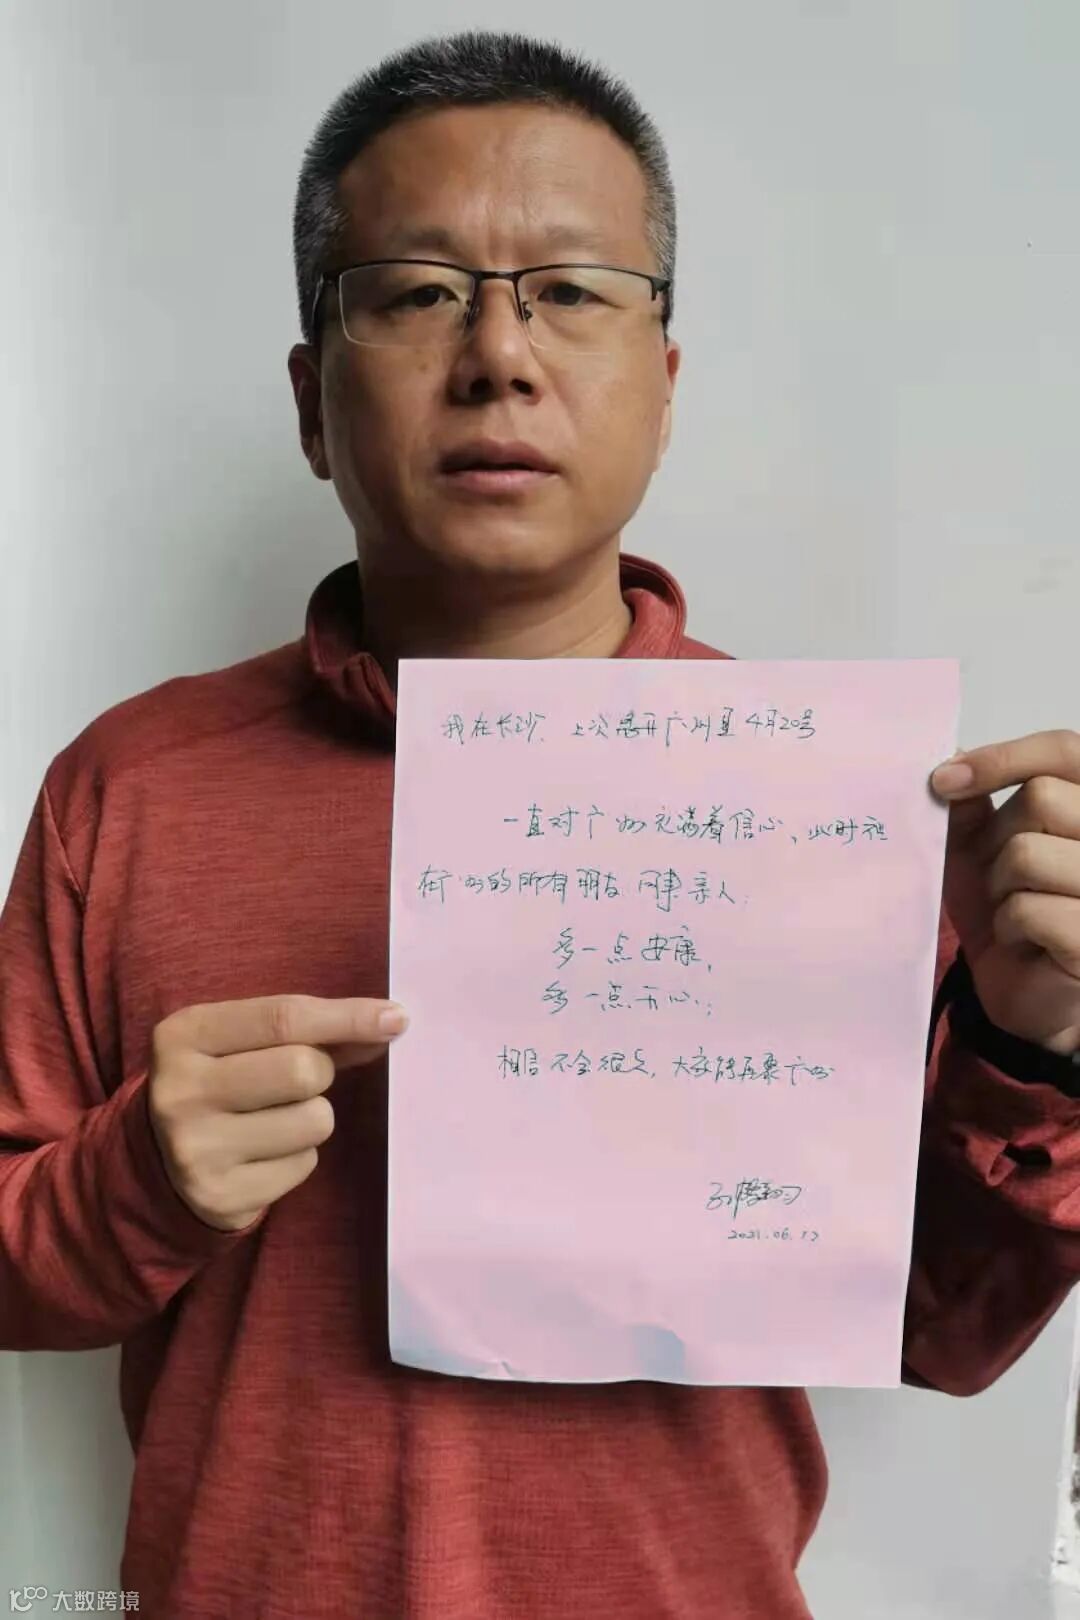 我在长沙、上次离开广州是4月20号
一直对广州充满着信心、此时祝
在广州的所有朋友、同事、亲人:
多一点安康,
多一点开心;
相信不会很久,大家能再聚广州
2021.06.17
大数跨境